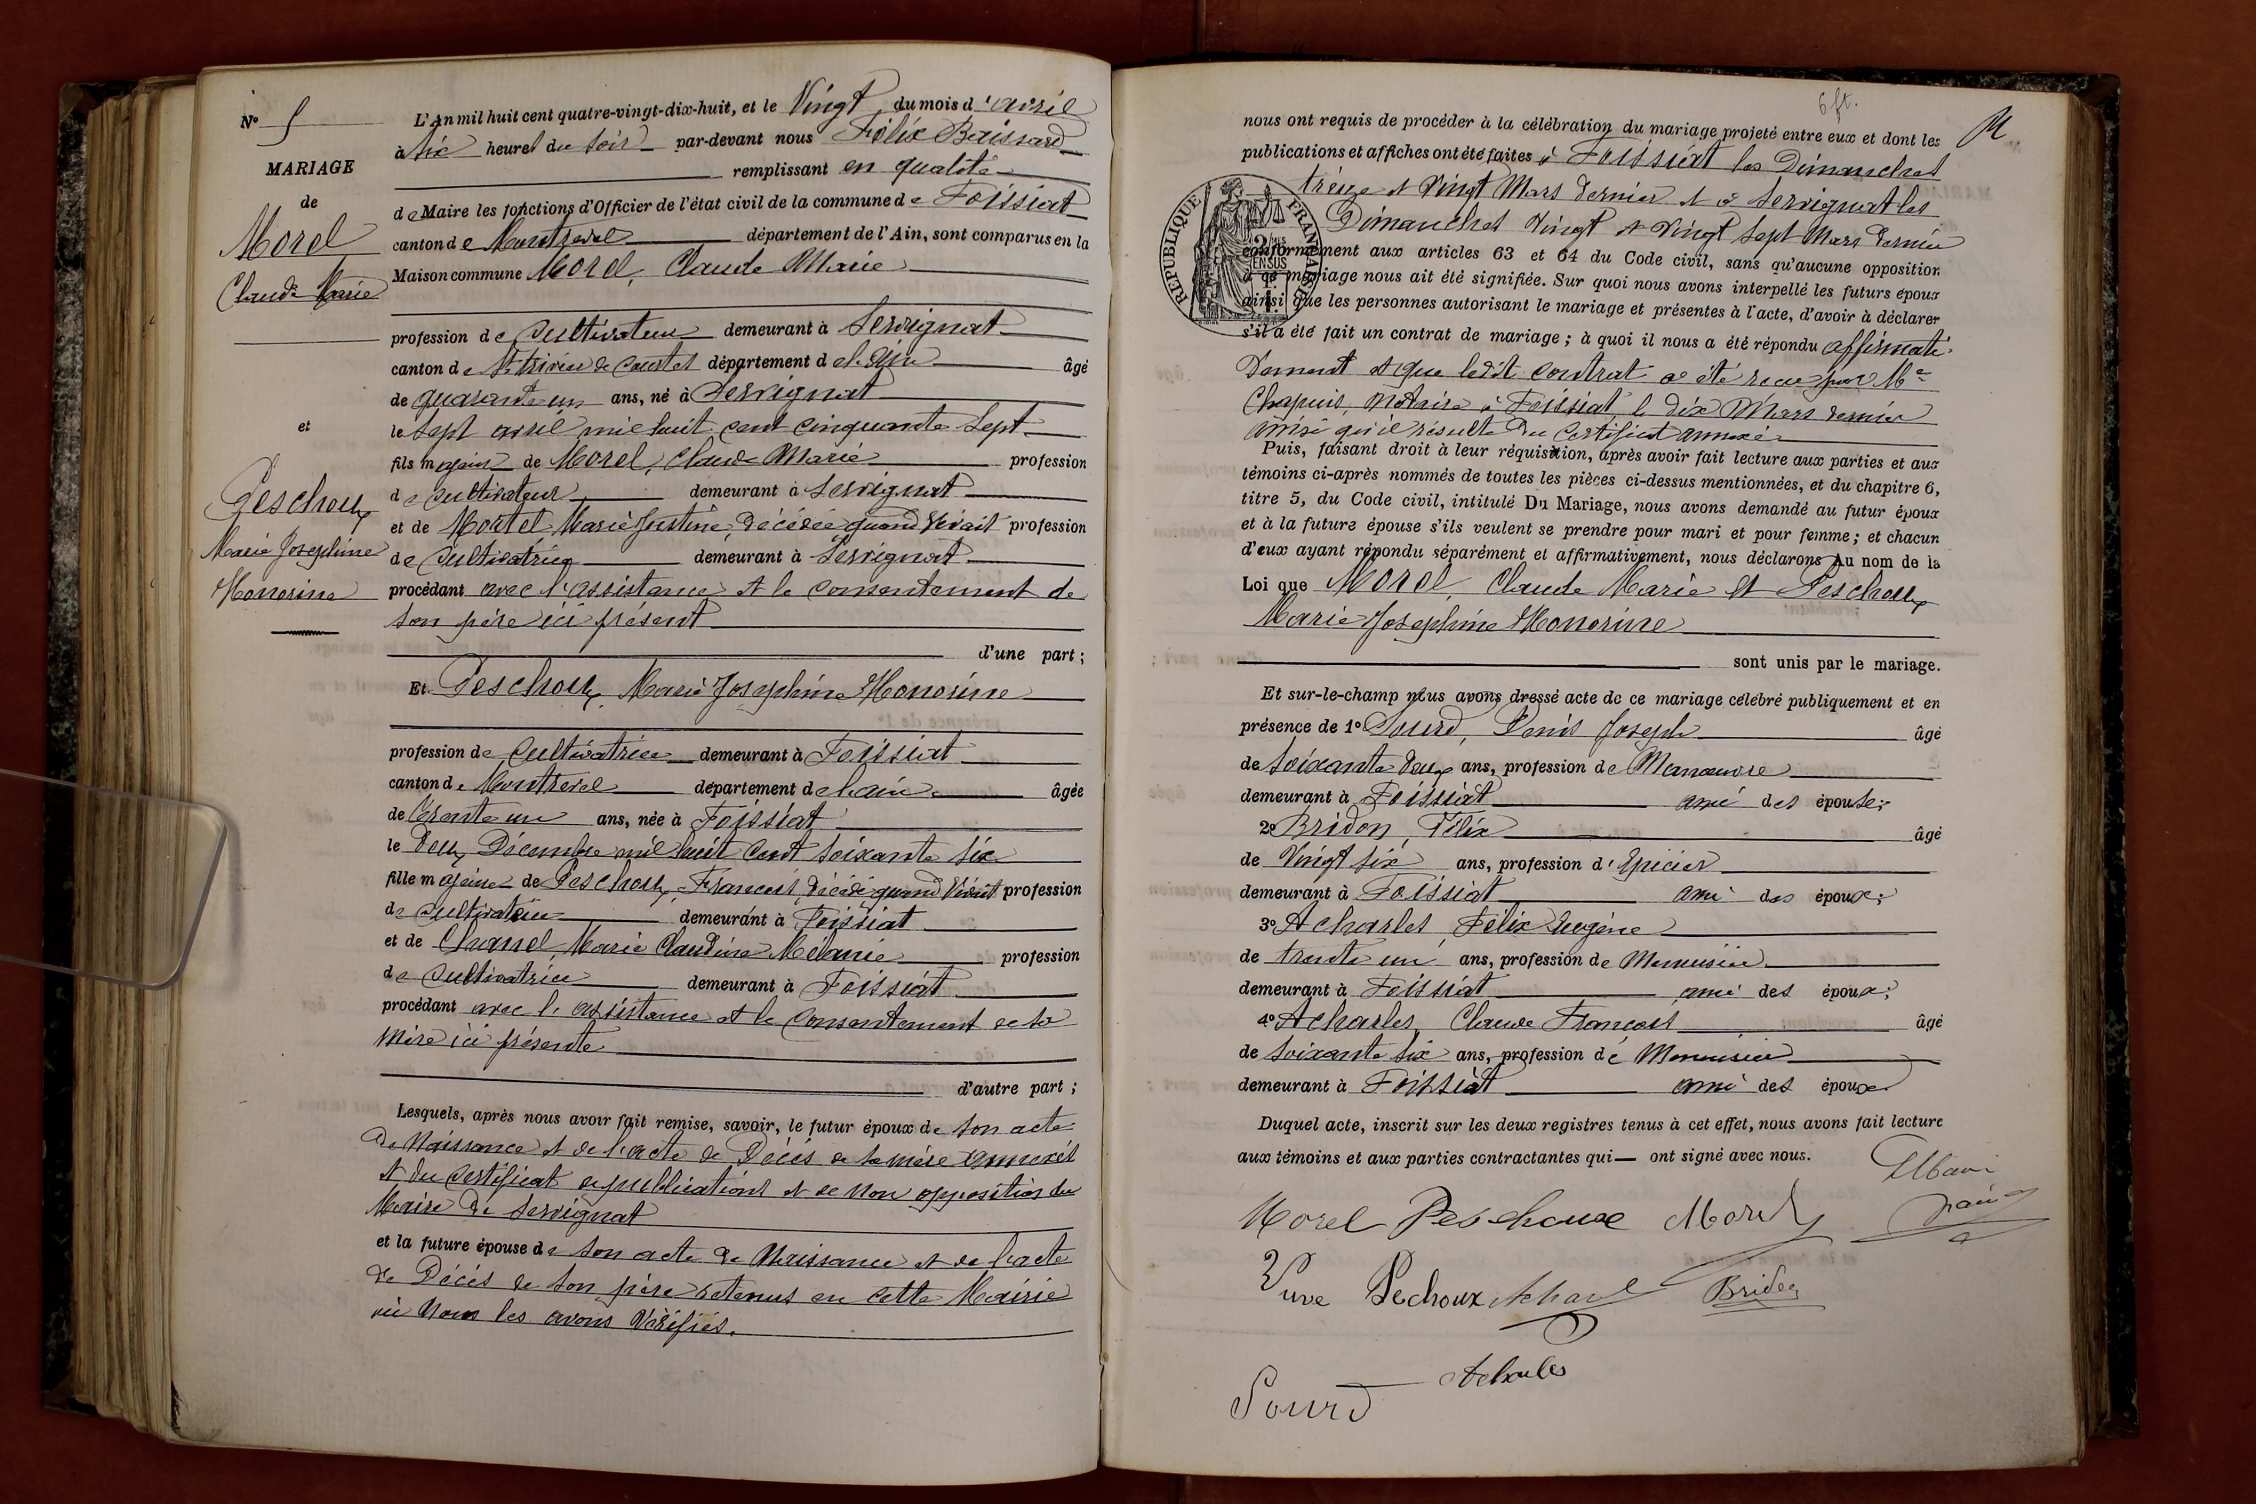 N° 5
MARIAGE
de
Morel
Claude Marie
et
Peschoux
Marie Joséphine
Honorine
L'An mil huit cent quatre-vingt-dix-huit, et le Vingt du mois d'avril
à six heures du soir par-devant nous Félix Baissard
remplissant en qualité
de Maire les fonctions d'Officier de l'état civil de la commune de Foissiat
canton de Montrevel département de l'Ain, sont comparus en la
Maison commune Morel, Claude Marie
profession de Cultivateur demeurant à Servignat
canton de St trivier de Courtes département de l'Ain âgé
de quarante un ans, né à Servignat
le sept avril mil huit cent cinquante sept
fils majeur de Morel, Claude Marie profession
de Cultivateur demeurant à Servignat
et de Mortel Marie Justine, décédée quand Vivait profession
de Cultivatrice demeurant à Servignat
procédant avec l'assistance et le consentement de
son père ici présent
d'une part ;
Et Peschoux, Marie Joséphine Honorine
profession de Cultivatrice demeurant à Foissiat
canton de Montrevel département de l'ain âgée
de Trente un ans, née à Foissiat
le Deux Décembre mil huit cent soixante six
fille majeure de Peschoux, François, décédé quand Vivait profession
de Cultivateur demeurant à Foissiat
et de Chanel, Marie Claudine Mélanie profession
de Cultivatrice demeurant à Foissiat
procédant avec l'assistance et le Consentement de sa
Mère ici présente
d'autre part ;
Lesquels, après nous avoir fait remise, savoir, le futur époux de son acte
de Naissance et de l'acte de Décès de sa mère annexés
et du Certificat de publications et de Non opposition du
Maire de Servignat
et la future épouse de son acte de Naissance et de l'acte
de Décès de son père retenus en cette Mairie
où Nous les avons Vérifiés.
6 ft.
nous ont requis de procéder à la célébration du mariage projeté entre eux et dont les
publications et affiches ont été faites à Foissiat les Dimanches
treize et Vingt Mars dernier et à Servignat les
Dimanches Vingt et Vingt sept Mars dernier
RÉPUBLIQUE FRANÇAISE
conformément aux articles 63 et 64 du Code civil, sans qu'aucune opposition
à ce mariage nous ait été signifiée. Sur quoi nous avons interpellé les futurs époux
ainsi que les personnes autorisant le mariage et présentes à l'acte, d'avoir à déclarer
s'il a été fait un contrat de mariage ; à quoi il nous a été répondu affirmati-
vement et que ledit contrat a été reçu par Me
Chapuis, Notaire à Foissiat, le dix Mars dernier
ainsi qu'il résulte du Certificat annexé
Puis, faisant droit à leur réquisition, après avoir fait lecture aux parties et aux
témoins ci-après nommés de toutes les pièces ci-dessus mentionnées, et du chapitre 6,
titre 5, du Code civil, intitulé Du Mariage, nous avons demandé au futur époux
et à la future épouse s'ils veulent se prendre pour mari et pour femme ; et chacun
d'eux ayant répondu séparément et affirmativement, nous déclarons Au nom de la
Loi que Morel, Claude Marie et Peschoux
Marie Joséphine Honorine
sont unis par le mariage.
Et sur-le-champ nous avons dressé acte de ce mariage célébré publiquement et en
présence de 1° Sourd, Denis Joseph âgé
de soixante deux ans, profession de Manœuvre
demeurant à Foissiat ami des époux ;
2° Bridon, Félix âgé
de Vingt six ans, profession d'Epicier
demeurant à Foissiat ami des époux ;
3° Acharles, Félix Eugène
de trente un ans, profession de Menuisier
demeurant à Foissiat ami des époux ;
4° Acharles, Claude François âgé
de soixante six ans, profession de Menuisier
demeurant à Foissiat ami des époux
Duquel acte, inscrit sur les deux registres tenus à cet effet, nous avons fait lecture
aux témoins et aux parties contractantes qui — ont signé avec nous.
Morel Peschoux Morel
Veuve Pechoux Acharl Bridon
Acharles
Sourd